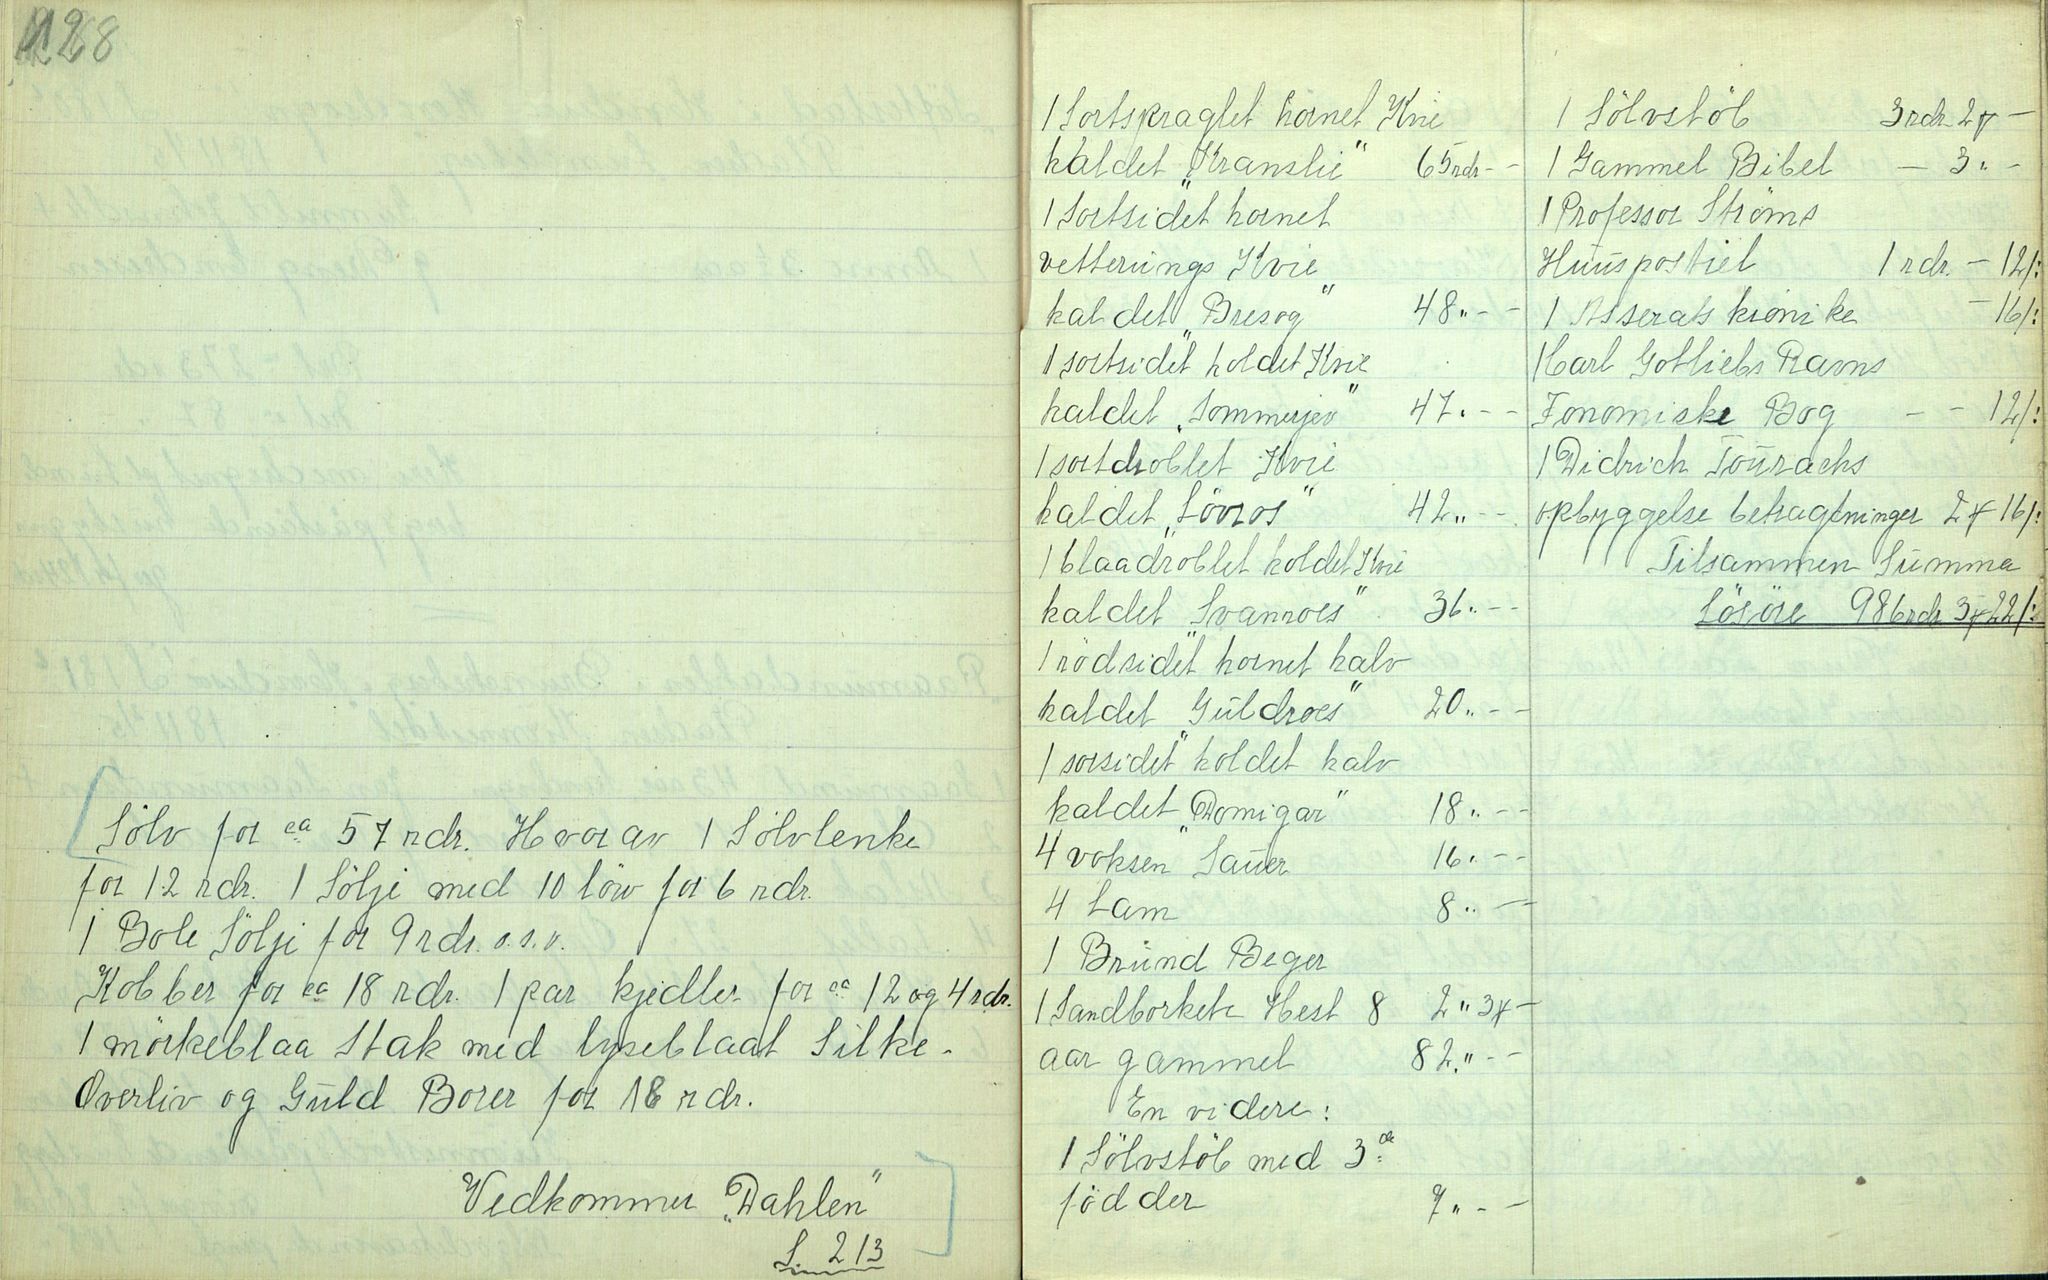 128
Sölv for ca 57 rdr. Hvorav 1 Sölvlenke
for 12 rdr. 1 Sölje med 10 löv for 6 rdr.
1 Bole Sölje for 9 rdr. o.s.v.
Kobber for ca 18 rdr. 1 par kjedler for ca 12 og 4 rdr.
1 mörkeblaa Stak med lyseblaat Silke-
Overliv og Guld Borer for 18 rdr.
Vedkommer „Dahlen"
S. 213
1 Sortspraglet hornet Kvie
kaldet „Kranslie" 65 rdr - -
1 Sortsidet hornet
vetterungs Kvie
kaldet „Bresog" 48 „ - -
1 sortsidet koldet Kvie
kaldet „Sommerjev" 47 „ - -
1 sortdroblet Kvie
kaldet „Lövros" 42 „ - -
1 blaadroblet koldet Kvie
kaldet „Svanroes" 36 „ - -
1 rödsidet hornet kalv
kaldet „Guldroes" 20 „ - -
1 sorsidet koldet kalv
kaldet „Domigar" 18 „ - -
4 voksen Sauer 16 „ - -
4 Lam 8 „ -
1 Brund Beger
1 Sandborkete Hest 8 2 „ 3 -
aar gammel 82 „ - -
En videre:
1 Sölvstöb med 3de
födder 7 „ - -
1 Sölvstöb 3 rdr 2 -
1 Gammel Bibel - 3 „ -
1 Professor Ströms
Huuspostiel 1 rdr. - 12/:
1 Asserats krönike - 16/:
1 Carl Gotliebs Ravns
Fonomiske Bog - - 12/:
1 Didrich Tourachs
opbyggelse betragtninger 2 16/:
Tilsammen Summa
Lösöre 986 rdr 3 22/: